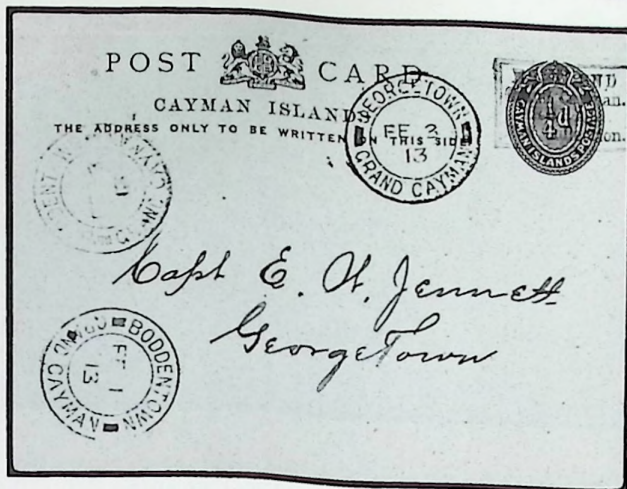 POST CARD
CAYMAN ISLAND
THE ADDRESS ONLY TO BE WRITTEN ON THIS SIDE
GEORGETOWN
FE 3
13
GRAND CAYMAN
¼d
CAYMAN ISLANDS POSTAGE
Capt E. W. Jennett
GeorgeTown
BODDENTOWN
FE 1
13
GRAND CAYMAN